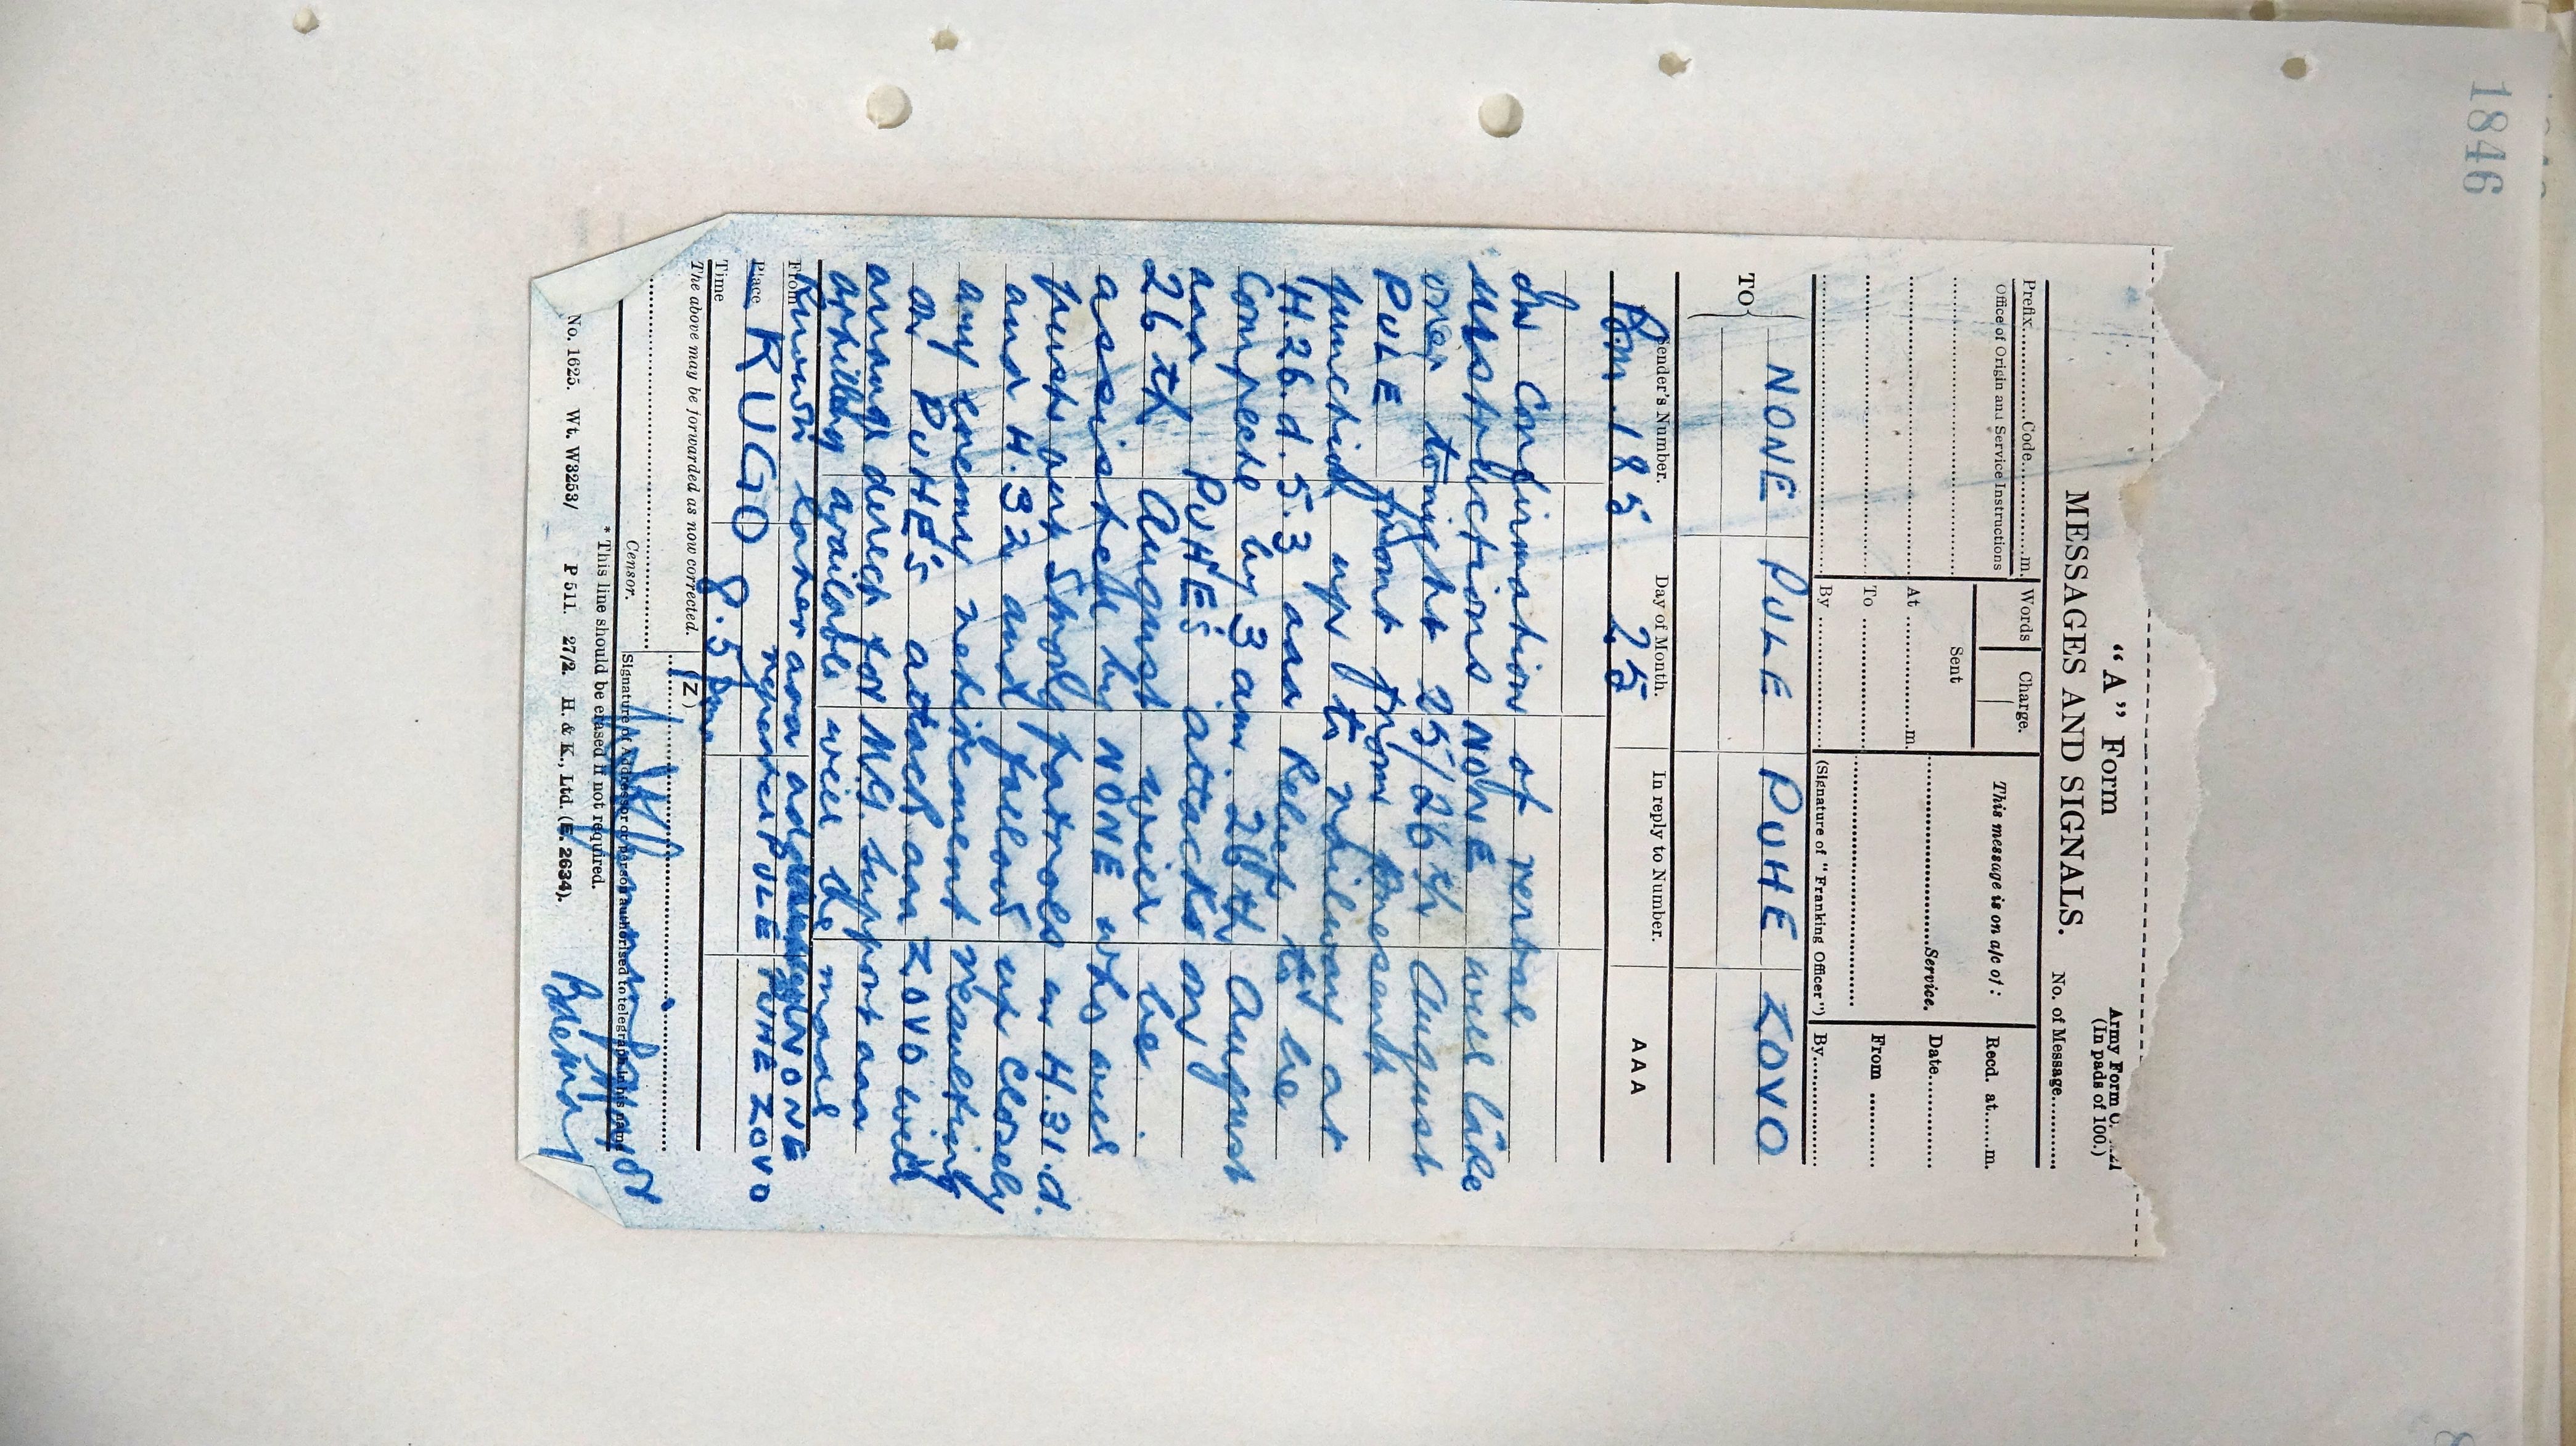 1846
"A" Form
Army Form C.
MESSAGES AND SIGNALS.
(In pads of 100.)
No. of Message
Prefix Code m.
Words
Charge.
This message is on a/c of :
Recd. at m.
Office of Origin and Service Instructions
Sent
At m.
Service.
Date
To
From
By
(Signature of "Franking Officer")
By
TO
NONE PULE PUHE ZOVO
Sender's Number.
Day of Month.
In reply to Number.
AAA
Bm 185 25
In Confirmation of verbal
instructions NONE will take
over tonight 25/26 th August
PULE front from present
junction up to railway at
H.26.d.5.3 aaa Relief to be
complete by 3 am 26th August
aaa PUHE'S attacks on
26 th August will be
assisted by NONE who will
push out strong patrols in H.31.d.
and H.32 and follow up closely
any enemy retirement resulting
on PUHE'S attack aaa ZOVO will
arrange direct for MG. support aaa
artillery available will be made
known later aaa addressed NONE
repeated PULE PUHE ZOVO
From
Place RUGO
Time 8.5 pm
The above may be forwarded as now corrected.
(Z)
Censor.
Signature of Addressor or person authorised to telegraph in his name
Major
* This line should be erased if not required.
No. 1625. Wt. W3253/ P 511. 27/2. H. & K., Ltd. (E. 2634).